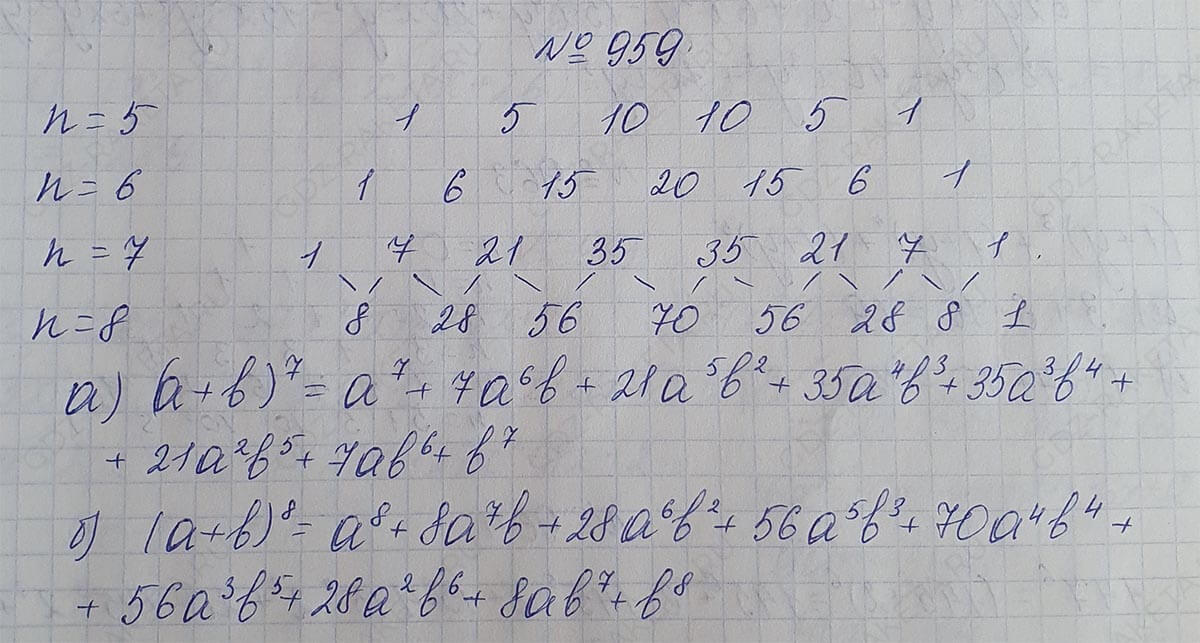 № 959.
n = 5 1 5 10 10 5 1
n = 6 1 6 15 20 15 6 1
n = 7 1 7 21 35 35 21 7 1
n = 8 8 28 56 70 56 28 8 1
а) (a+b)⁷ = a⁷ + 7a⁶b + 21a⁵b² + 35a⁴b³ + 35a³b⁴ +
+ 21a²b⁵ + 7ab⁶ + b⁷
б) (a+b)⁸ = a⁸ + 8a⁷b + 28a⁶b² + 56a⁵b³ + 70a⁴b⁴ +
+ 56a³b⁵ + 28a²b⁶ + 8ab⁷ + b⁸